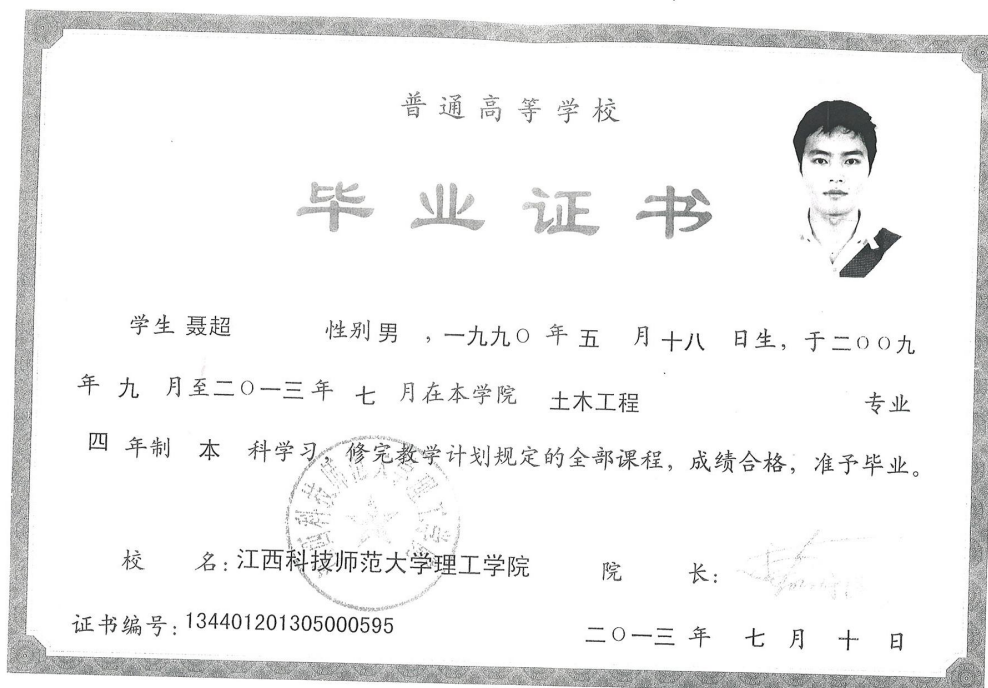 普通高等学校
毕业证书
学生 聂超 性别 男 ，一九九〇 年 五 月 十八 日生，于 二〇〇九
年 九 月至 二〇一三 年 七 月在本学院 土木工程 专业
四 年制 本 科学习，修完教学计划规定的全部课程，成绩合格，准予毕业。
江西科技师范大学理工学院
校 名：江西科技师范大学理工学院 院 长：
证书编号：134401201305000595 二〇一三 年 七 月 十 日